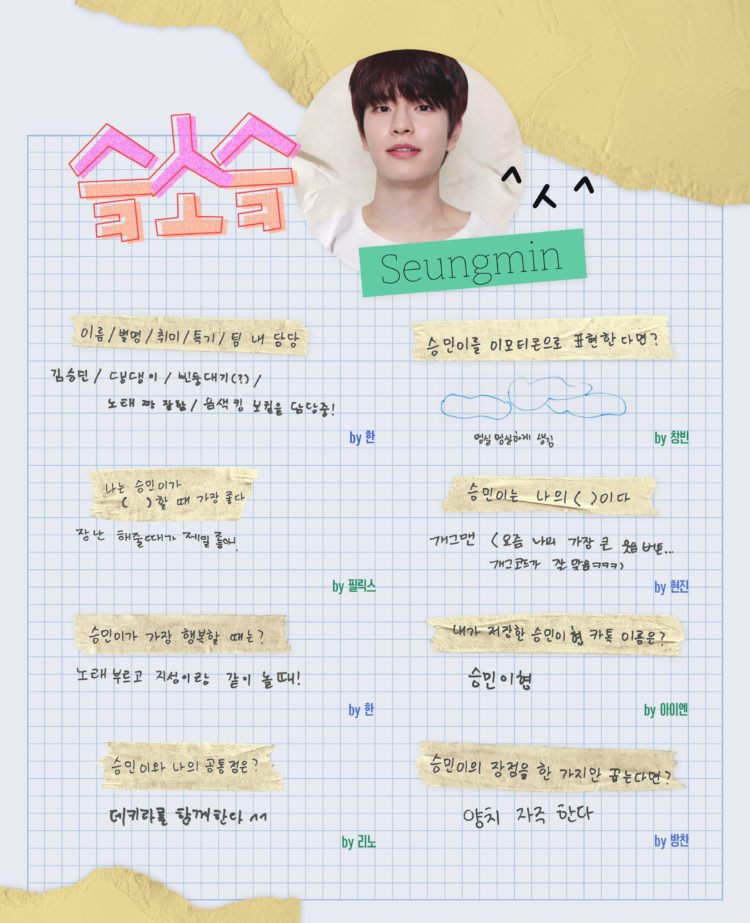 슴스슴
^ㅅ^
Seungmin
이름/별명/취미/특기/팀 내 담당
김승민 / 댕댕이 / 빈둥대기(?) /
노래 짱 잘함 / 음색킹 보컬을 담당중!
by 한
승민이를 이모티콘으로 표현한다면?
멍실멍실하게 생김
by 창빈
나는 승민이가
( )할 때 가장 좋다
장난 해줄때가 제일 좋아!
by 필릭스
승민이는 나의 ( )이다
개그맨 (요즘 나의 가장 큰 웃음버튼...
개그코드가 잘 맞음ㅋㅋㅋ)
by 현진
승민이가 가장 행복할 때는?
노래 부르고 지성이랑 같이 놀 때!
by 한
내가 저장한 승민이 형 카톡 이름은?
승민이형
by 아이엔
승민이와 나의 공통점은?
데키라를 함께한다 ^^
by 리노
승민이의 장점을 한 가지만 꼽는다면?
양치 자주 한다
by 방찬